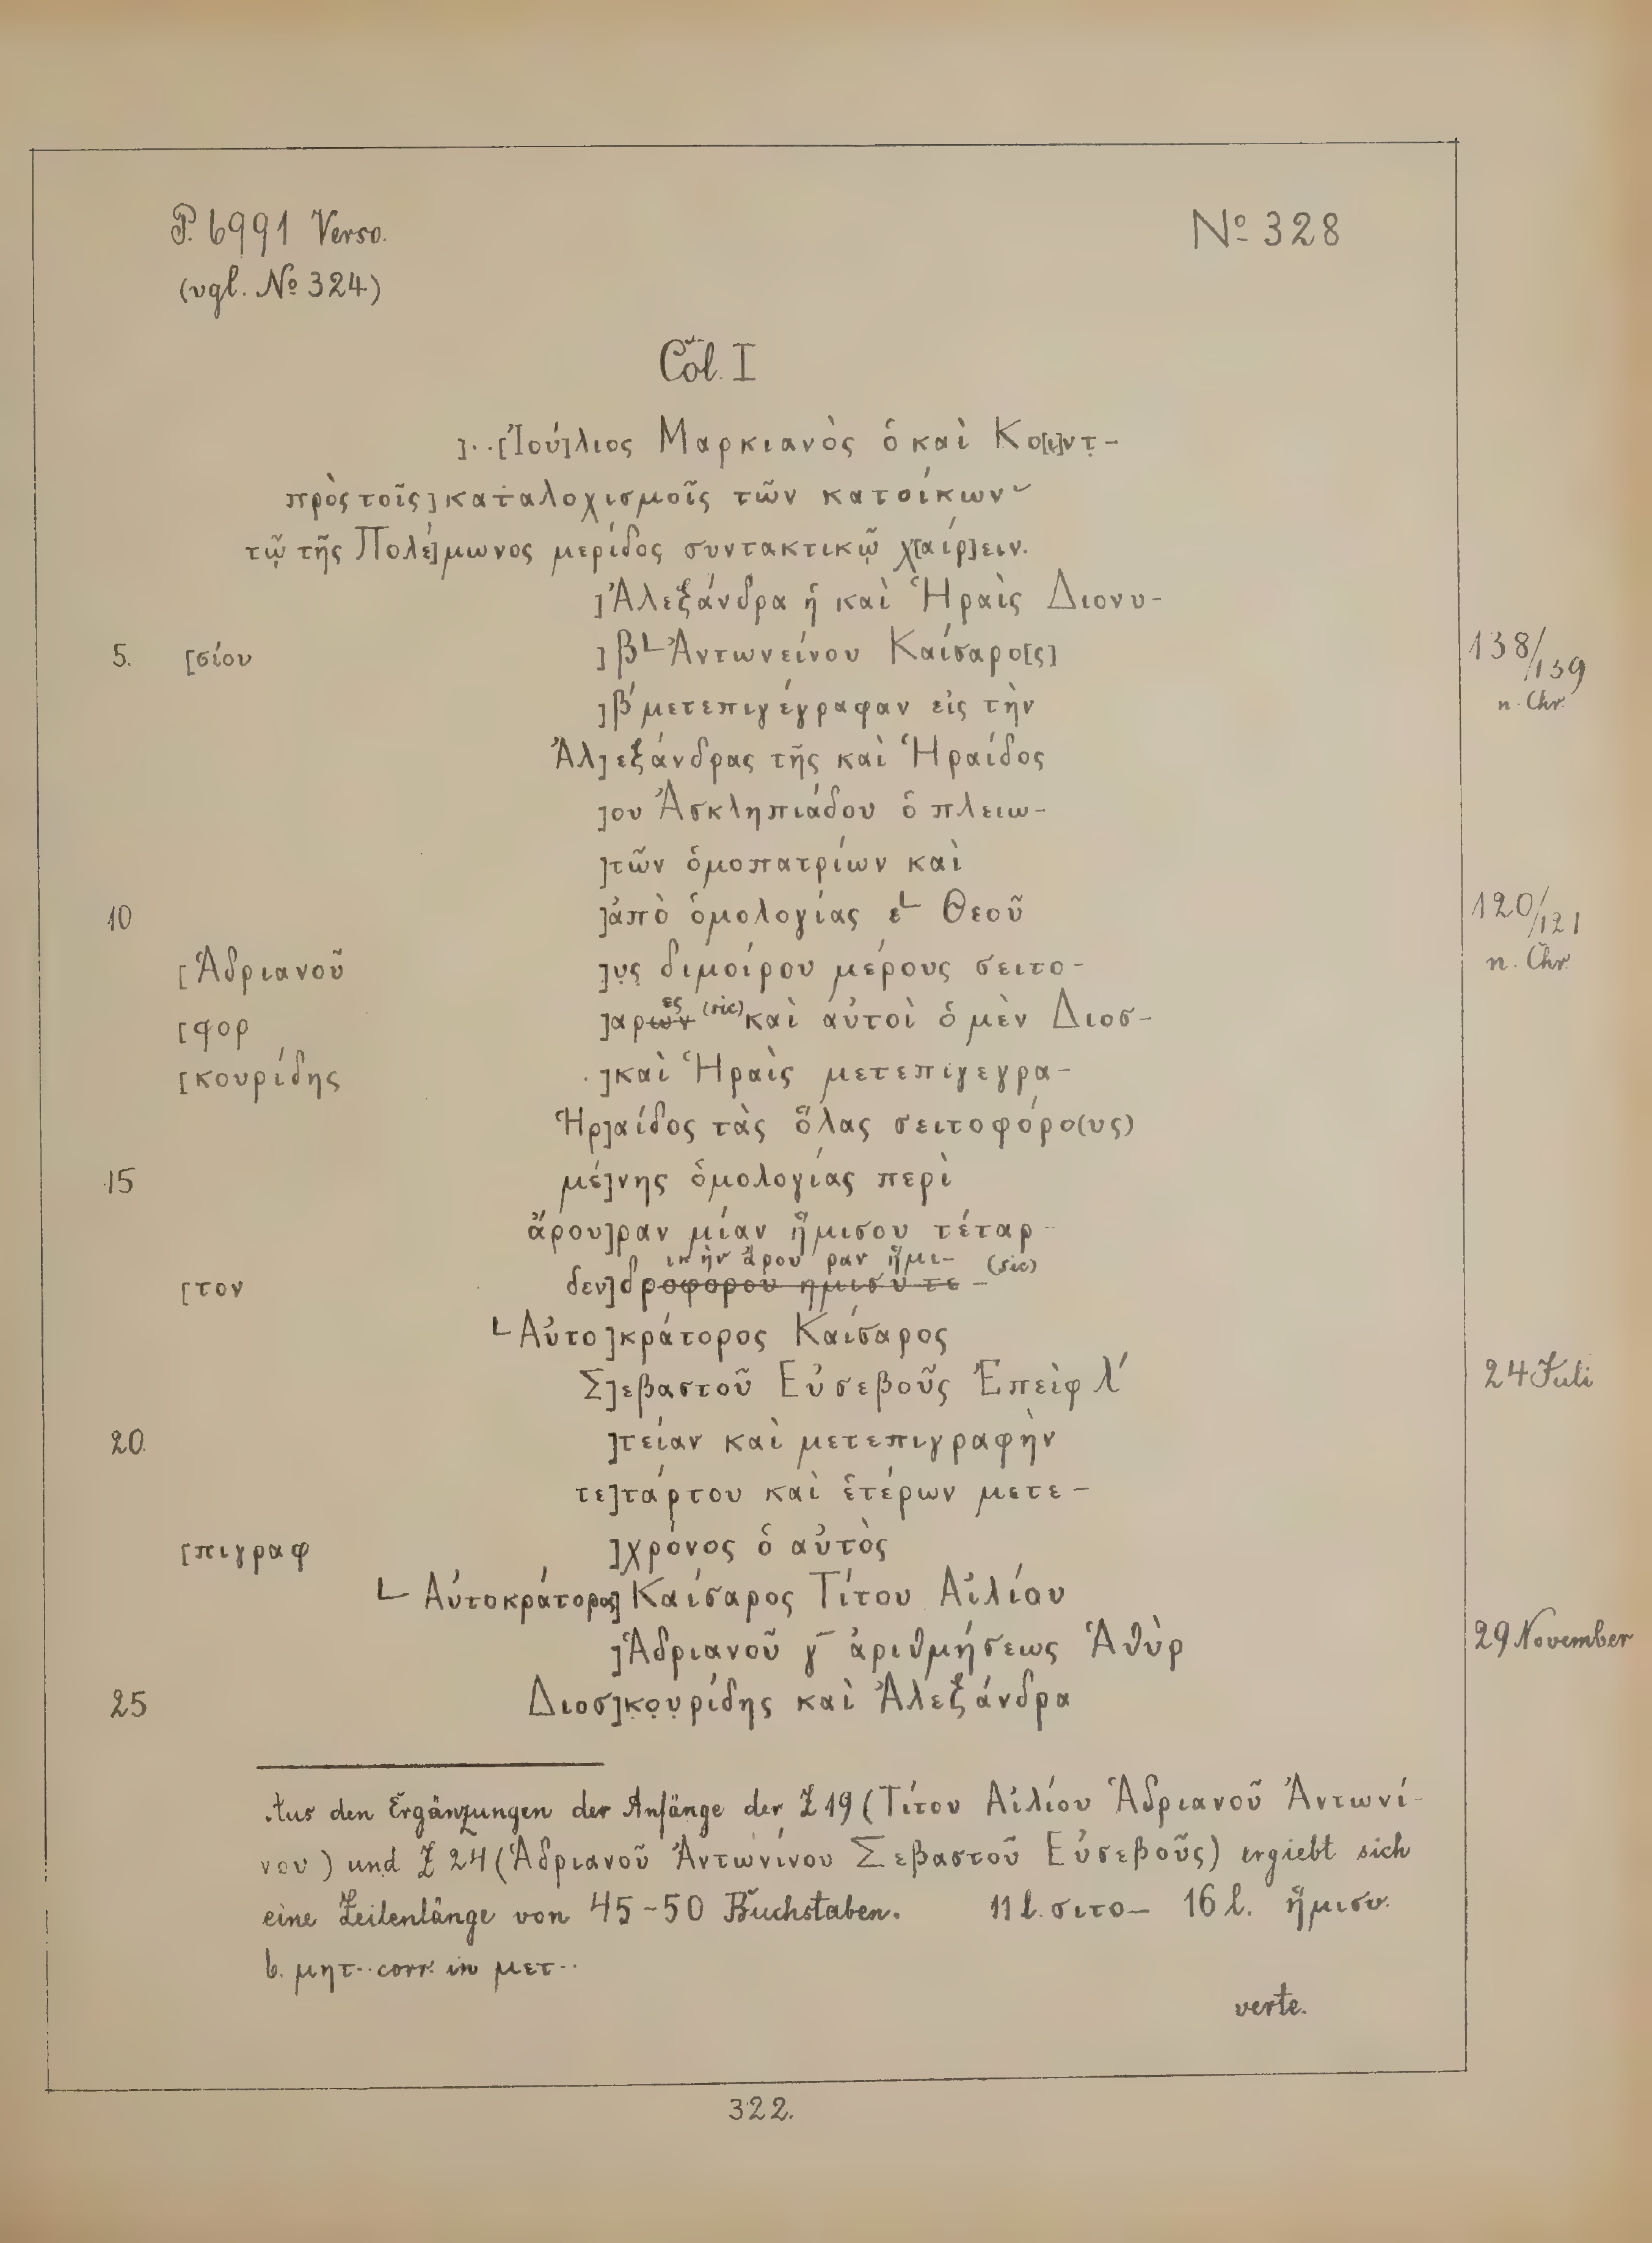 P. 6991 Verso. No 328
(vgl. No 324)
Col. I
]..[Ἰού]λιος Μαρκιανὸς ὁ καὶ Κο[ι]ντ-
πρὸς τοῖς] καταλοχισμοῖς τῶν κατοίκων
τῷ τῆς Πολέ]μωνος μερίδος συντακτικῷ χ[αίρ]ειν.
]Ἀλεξάνδρα ἡ καὶ Ἡραὶς Διονυ-
5. [σίου ] β L Ἀντωνείνου Καίσαρο[ς] 138/139 n. Chr.
]β μετεπιγέγραφαν εἰς τὴν
Ἀλ]εξάνδρας τῆς καὶ Ἡραίδος
]ου Ἀσκληπιάδου ὁ πλειω-
]τῶν ὁμοπατρίων καὶ
10 ]ἀπὸ ὁμολογίας ε L Θεοῦ 120/121 n. Chr.
[Ἁδριανοῦ ]υς διμοίρου μέρους σειτο-
[φορ ]αρων ες (sic) καὶ αὐτοὶ ὁ μὲν Διοσ-
[κουρίδης .]καὶ Ἡραὶς μετεπιγεγρα-
Ἡρ]αίδος τὰς ὅλας σειτοφόρο(υς)
15 μέ]νης ὁμολογίας περὶ
ἄρου]ραν μίαν ἥμισου τέταρ-
[τον δεν]δροφορου ημισυ τε ικὴν ἄρου ραν ἥμι- - (sic)
L Αὐτο]κράτορος Καίσαρος
Σ]εβαστοῦ Εὐσεβοῦς Ἐπεὶφ λ´ 24 Juli
20. ]τείαν καὶ μετεπιγραφὴν
τε]τάρτου καὶ ἑτέρων μετε-
[πιγραφ ]χρόνος ὁ αὐτὸς
L Αὐτοκράτορος] Καίσαρος Τίτου Αἰλίου
]Ἁδριανοῦ γ ἀριθμήσεως Ἁθὺρ 29 November
25 Διοσ]κουρίδης καὶ Ἀλεξάνδρα
Aus den Ergänzungen der Anfänge der Z 19 (Τίτου Αἰλίου Ἁδριανοῦ Ἀντωνί-
νου) und Z 24 (Ἁδριανοῦ Ἀντωνίνου Σεβαστοῦ Εὐσεβοῦς) ergiebt sich
eine Zeilenlänge von 45-50 Buchstaben. 11 l. σιτο- 16 l. ἥμισυ.
6. μητ.. corr. in μετ..
verte.
322.